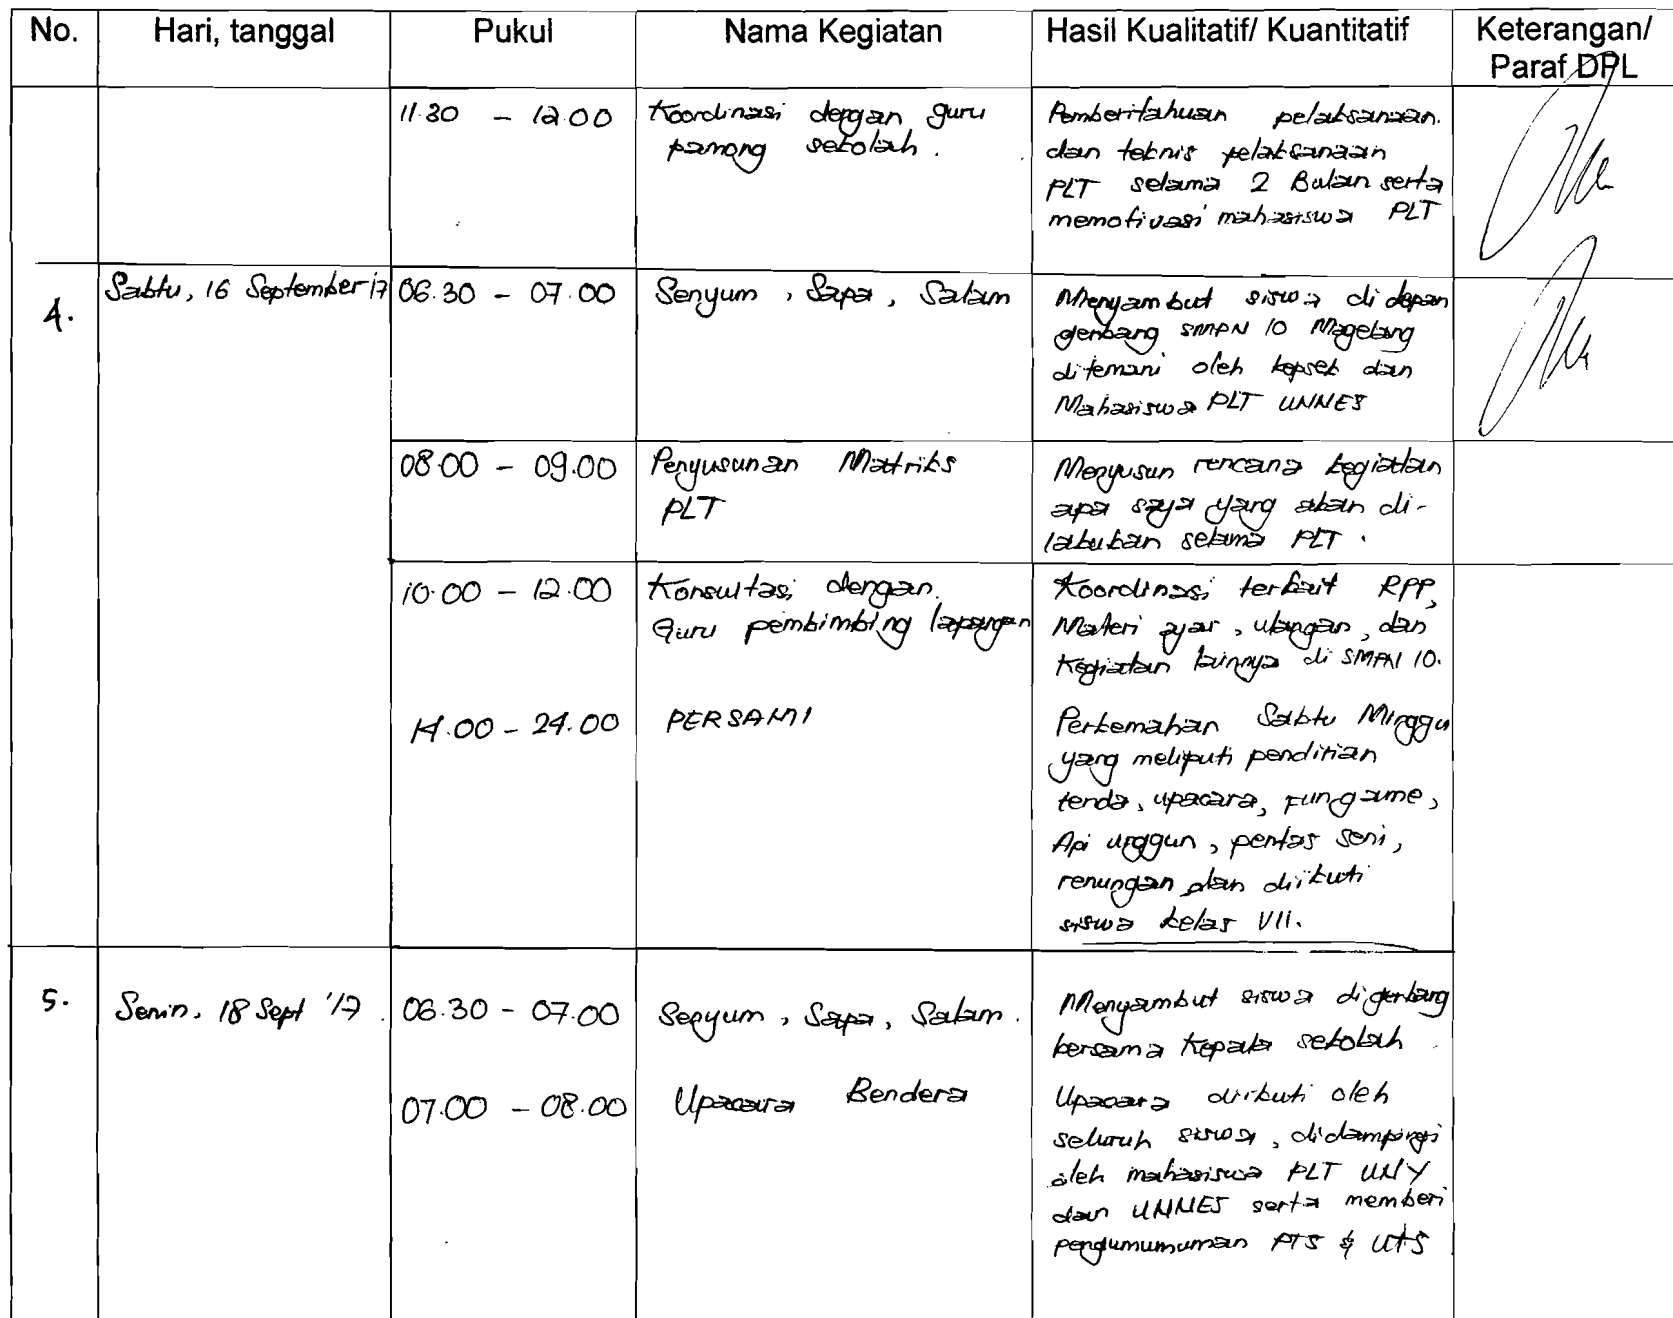 No. Hari, tanggal Pukul Nama Kegiatan Hasil Kualitatif/ Kuantitatif Keterangan/
Paraf DPL
11.30 - 12.00 Koordinasi dengan guru Pemberitahuan pelaksanaan.
pamong sekolah. dan teknis pelaksanaan
PLT selama 2 Bulan serta
memotivasi mahasiswa PLT
4. Sabtu, 16 September 17 06.30 - 07.00 Senyum, Sapa, Salam Menyambut siswa di depan
gerbang SMPN 10 Magelang
ditemani oleh kepsek dan
Mahasiswa PLT UNNES
08.00 - 09.00 Penyusunan Matriks Menyusun rencana kegiatan
PLT apa saja yang akan di-
lakukan selama PLT.
10.00 - 12.00 Konsultasi dengan Koordinasi terkait RPP,
Guru pembimbing lapangan Materi ajar, ulangan, dan
Kegiatan lainnya di SMPN 10.
14.00 - 24.00 PERSAMI Perkemahan Sabtu Minggu
yang meliputi pendirian
tenda, upacara, Fun game,
Api unggun, pentas seni,
renungan dan diikuti
siswa kelas VII.
5. Senin, 18 Sept '17. 06.30 - 07.00 Senyum, Sapa, Salam. Menyambut siswa digerbang
bersama Kepala sekolah.
07.00 - 08.00 Upacara Bendera Upacara diikuti oleh
seluruh siswa, didampingi
oleh mahasiswa PLT UNY
dan UNNES serta memberi
pengumumuman PTS & UTS